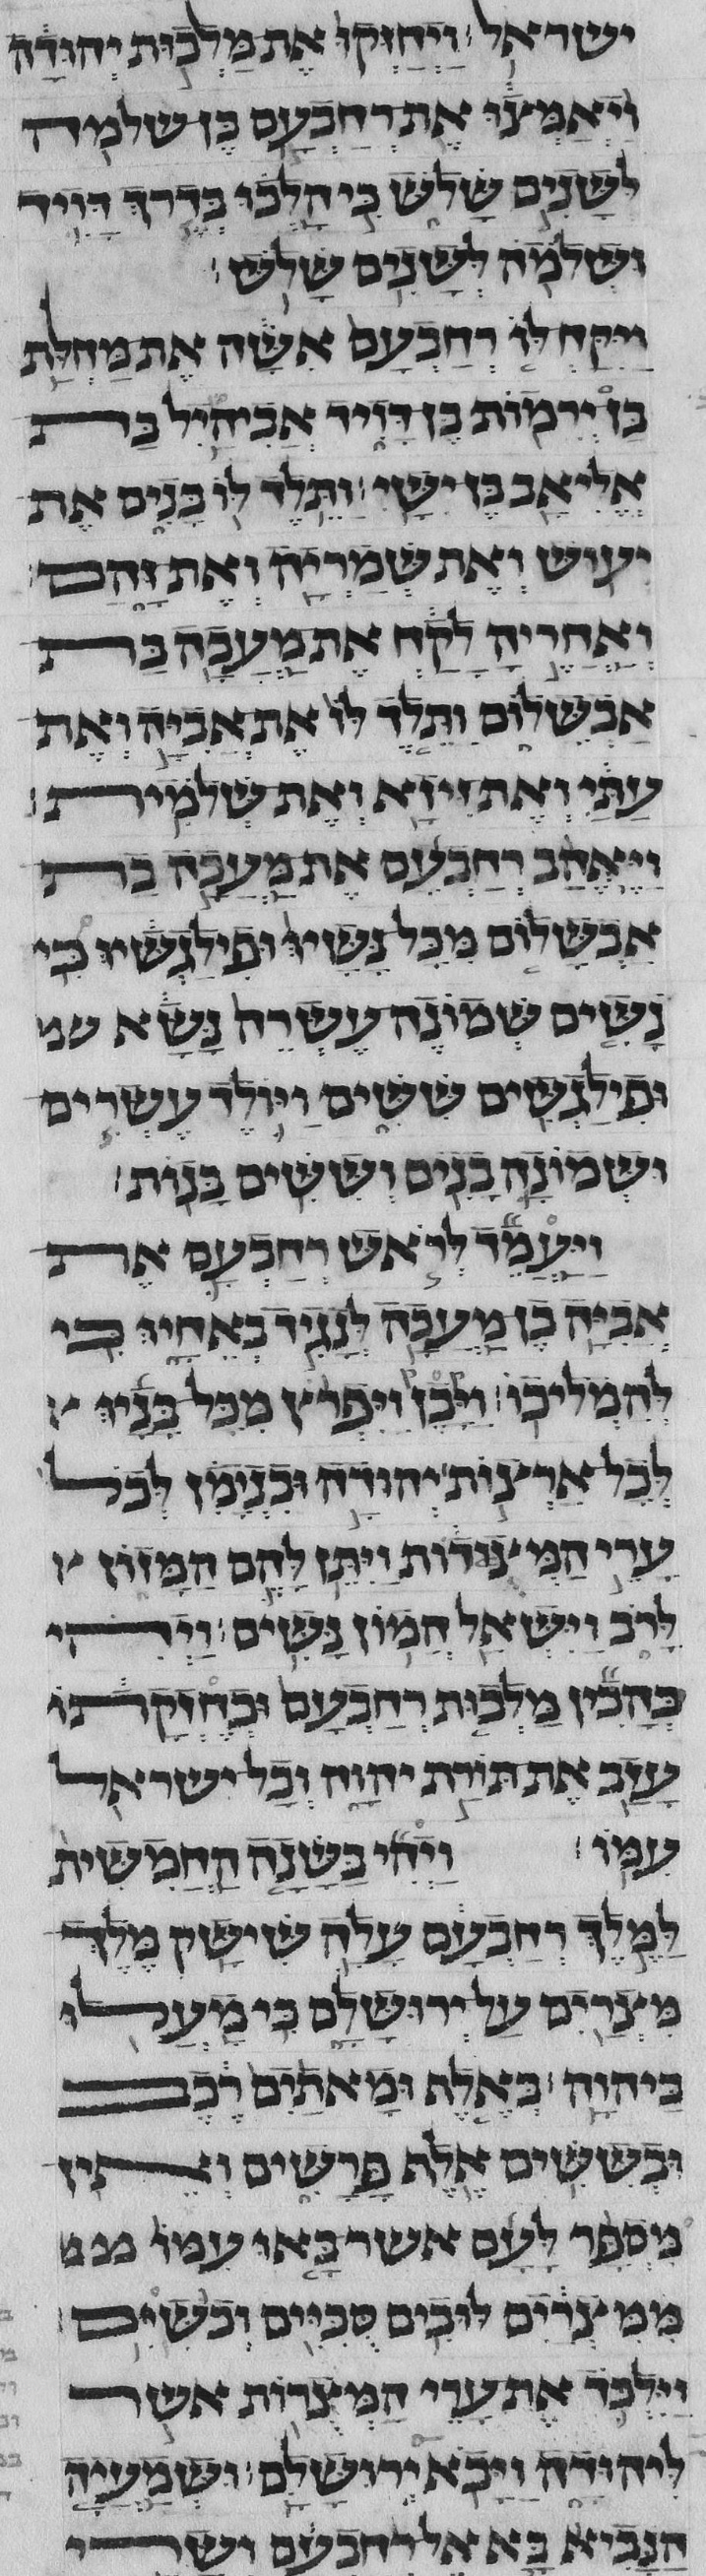 ישראל׃ ויחזקו את מלכות יהודה
ויאמצו את רחבעם בן שלמה
לשנים שלש כי הלכו בדרך דויד
ושלמה לשנים שלש׃
ויקח לו רחבעם אשה את מחלת
בן ירמות בן דויד אביהיל בת
אליאב בן ישי׃ ותלד לו בנים את
יעוש ואת שמריה ואת זהם׃
ואחריה לקח את מעכה בת
אבשלום ותלד לו את אביה ואת
עתי ואת זיזא ואת שלמית׃
ויאהב רחבעם את מעכה בת
אבשלום מכל נשיו ופילגשיו כי
נשים שמונה עשרה נשא
ופילגשים ששים ויולד עשרים
ושמונה בנים וששים בנות׃
ויעמד לראש רחבעם את
אביה בן מעכה לנגיד באחיו כי
להמליכו׃ ויבן ויפרץ מכל בניו
לכל ארצות יהודה ובנימן לכל
ערי המצורות ויתן להם המזון
לרב וישאל המון נשים׃ ויהי
כהכין מלכות רחבעם ובחזקתו
עזב את תורת יהוה וכל ישראל
עמו׃ ויהי בשנה החמשית
למלך רחבעם עלה שישק מלך
מצרים על ירושלם כי מעלו
ביהוה׃ באלף ומאתים רכב
ובששים אלף פרשים ואין
מספר לעם אשר באו עמו ממ
ממצרים לובים סכיים וכשים׃
וילכד את ערי המצרות אשר
ליהודה ויבא ירושלם׃ ושמעיה
הנביא בא אל רחבעם ושרי